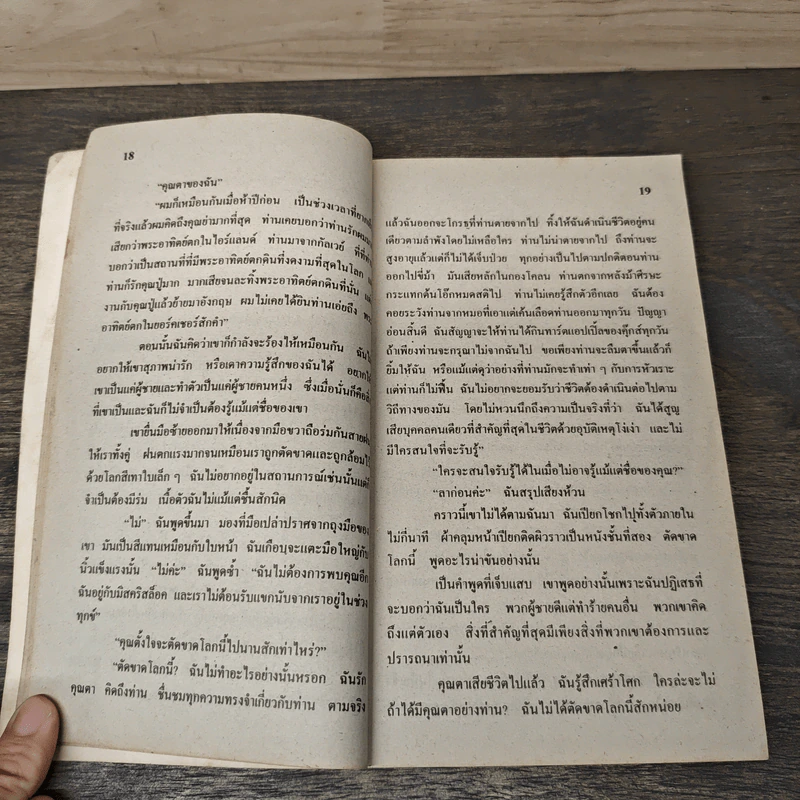 18
“คุณตาของฉัน”
“ผมก็เหมือนกันเมื่อห้าปีก่อน เป็นช่วงเวลาที่ยาก
ที่จริงแล้วผมคิดถึงคุณย่ามากที่สุด ท่านเคยบอกว่าท่านรักผม
เสียกว่าพระอาทิตย์ตกในไอร์แลนด์ ท่านมาจากกัลเวย์ ที่ที่
บอกว่าเป็นสถานที่ที่มีพระอาทิตย์ตกดินที่งดงามที่สุดในโลก
ท่านก็รักคุณปู่มาก มากเสียจนละทิ้งพระอาทิตย์ตกดินที่นั่น
งานกับคุณปู่แล้วย้ายมาอังกฤษ ผมไม่เคยได้ยินท่านเอ่ยถึง
อาทิตย์ตกในยอร์คเชอร์สักคำ”
ตอนนั้นฉันคิดว่าเขาก็กำลังจะร้องไห้เหมือนกัน
อยากให้เขาสุภาพน่ารัก หรือเดาความรู้สึกของฉันได้
เขาเป็นแค่ผู้ชายและทำตัวเป็นแค่ผู้ชายคนหนึ่ง ซึ่งเมื่อนั่นก็คือ
ที่เขาเป็นและฉันก็ไม่จำเป็นต้องรู้แม้แต่ชื่อของเขา
เขายื่นมือซ้ายออกมาให้เนื่องจากมือขวาถือร่มกันสายฝน
ให้เราทั้งคู่ ฝนตกแรงมากจนเหมือนเราถูกตัดขาดและถูกล้อม
ด้วยโลกสีเทาใบเล็ก ๆ ฉันไม่อยากอยู่ในสถานการณ์เช่นนั้น
จำเป็นต้องมีร่ม เนื้อตัวฉันไม่มีแม้แต่ชิ้นสักนิด
“ไม่” ฉันพูดขึ้นมา มองที่มือเปล่าปราศจากถุงมือของ
เขา มันเป็นสีแทนเหมือนกับใบหน้า ฉันเกือบจะแตะมือใหญ่กับ
นิ้วแข็งแรงนั้น “ไม่ค่ะ” ฉันพูดซ้ำ “ฉันไม่ต้องการพบคุณอีก
ฉันอยู่กับมิสคริสล็อค และเราไม่ต้อนรับแขกนับจากเราอยู่ในช่วง
ทุกข์”
“คุณตั้งใจจะตัดขาดโลกนี้ไปนานสักเท่าไหร่?”
“ตัดขาดโลกนี้? ฉันไม่ทำอะไรอย่างนั้นหรอก ฉันรัก
คุณตา คิดถึงท่าน ชื่นชมทุกความทรงจำเกี่ยวกับท่าน ตามจริง
19
แล้วฉันออกจะโกรธที่ท่านตายจากไป ทิ้งให้ฉันดำเนินชีวิตอยู่คน
เดียวตามลำพังโดยไม่เหลือใคร ท่านไม่น่าตายจากไป ถึงท่านจะ
สูงอายุแล้วแต่ก็ไม่ได้เจ็บป่วย ทุกอย่างเป็นไปตามปกติตอนท่าน
ออกไปขี่ม้า มันเสียหลักในกองโคลน ท่านตกจากหลังม้าศีรษะ
กระแทกต้นโอ๊กหมดสติไป ท่านไม่เคยรู้สึกตัวอีกเลย ฉันต้อง
คอยระวังท่านจากหมอที่เอาแต่เค้นเลือดท่านออกมาทุกวัน ปัญญา
อ่อนสิ้นดี ฉันสัญญาจะให้ท่านได้กินทาร์ตแอปเปิ้ลของคุ๊กส์ทุกวัน
ถ้าเพียงท่านจะกรุณาไม่จากฉันไป ขอเพียงท่านจะลืมตาขึ้นแล้วก็
ยิ้มให้ฉัน หรือแม้แต่ดุว่าอย่างที่ท่านมักจะทำเท่า ๆ กับการหัวเราะ
แต่ท่านก็ไม่ฟื้น ฉันไม่อยากจะยอมรับว่าชีวิตต้องดำเนินต่อไปตาม
วิถีทางของมัน โดยไม่หวนนึกถึงความเป็นจริงที่ว่า ฉันได้สูญ
เสียบุคคลคนเดียวที่สำคัญที่สุดในชีวิตด้วยอุบัติเหตุโง่เง่า และไม่
มีใครสนใจที่จะรับรู้”
“ใครจะสนใจรับรู้ได้ในเมื่อไม่อาจรู้แม้แต่ชื่อของคุณ?”
“ลาก่อนค่ะ” ฉันสรุปเสียงห้วน
คราวนี้เขาไม่ได้ตามฉันมา ฉันเปียกโชกไปทั้งตัวภายใน
ไม่กี่นาที ผ้าคลุมหน้าเปียกติดผิวราวเป็นหนังชั้นที่สอง ตัดขาด
โลกนี้ พูดอะไรน่าขันอย่างนั้น
เป็นคำพูดที่เจ็บแสบ เขาพูดอย่างนั้นเพราะฉันปฏิเสธที่
จะบอกว่าฉันเป็นใคร พวกผู้ชายดีแต่ทำร้ายคนอื่น พวกเขาคิด
ถึงแต่ตัวเอง สิ่งที่สำคัญที่สุดมีเพียงสิ่งที่พวกเขาต้องการและ
ปรารถนาเท่านั้น
คุณตาเสียชีวิตไปแล้ว ฉันรู้สึกเศร้าโศก ใครล่ะจะไม่
ถ้าได้มีคุณตาอย่างท่าน? ฉันไม่ได้ตัดขาดโลกนี้สักหน่อย